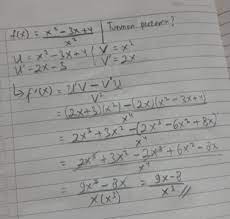 f(x) = x² - 3x + 4 / x² | Turunan pertama?
U = x² - 3x + 4 | V = x²
U' = 2x - 3 | V' = 2x
↳ f'(x) = U'V - V'U / V²
= (2x+3)(x²) - (2x)(x² - 3x + 4) / x⁴
= 2x³ + 3x² - (2x³ - 6x² + 8x) / x⁴
= 2x³ + 3x² - 2x³ + 6x² - 8x / x⁴
= 9x² - 8x / x(x³) = 9x - 8 / x³ //